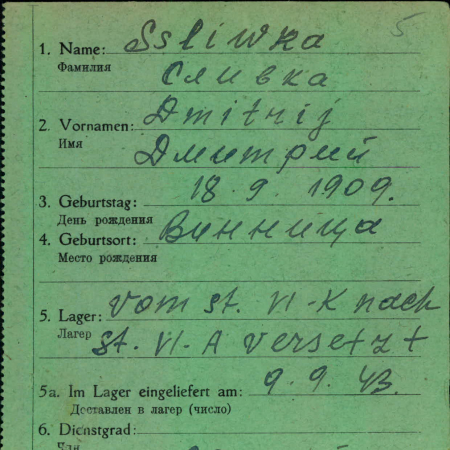 5
1. Name: Ssliwka
Фамилия Сливка
2. Vornamen: Dmitrij
Имя Дмитрий
3. Geburtstag: 18.9.1909.
День рождения
4. Geburtsort: Винница
Место рождения
5. Lager: vom St. VI-K nach
Лагер St. VI-A versetzt
5a. Im Lager eingeliefert am: 9.9.43.
Доставлен в лагер (число)
6. Dienstgrad: